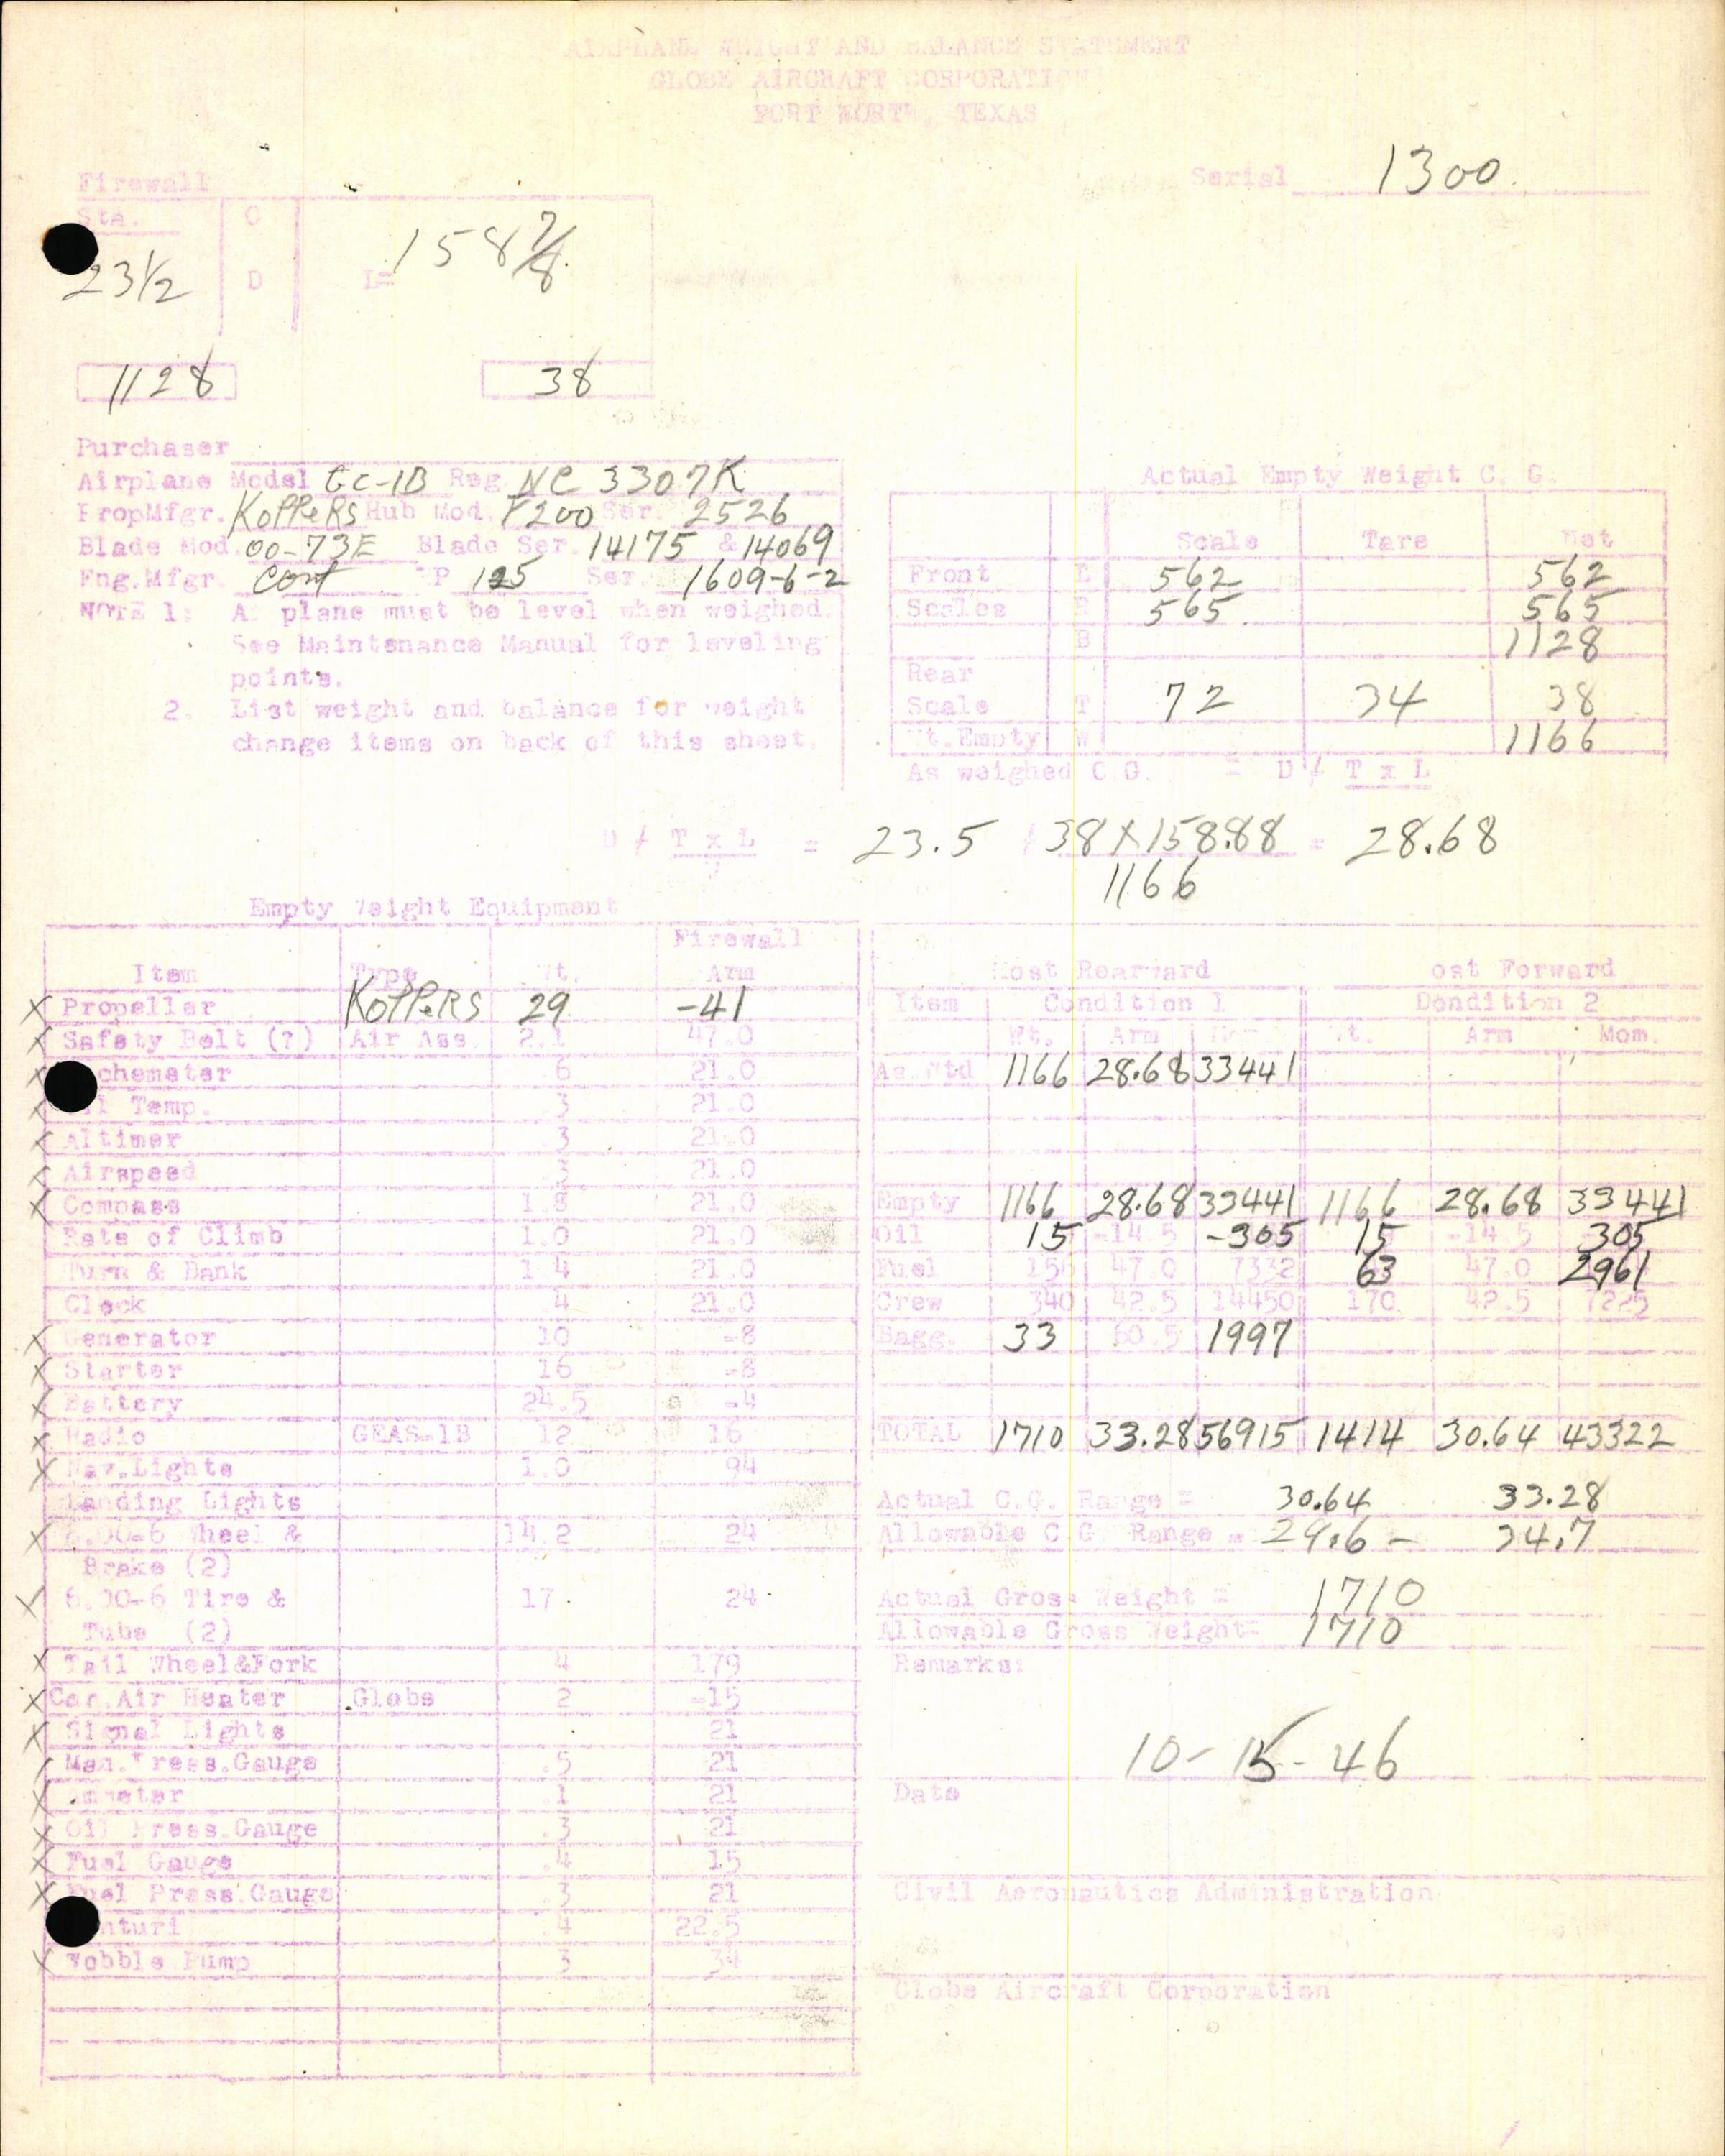 AIRPLANE WEIGHT AND BALANCE STATEMENT
GLOBE AIRCRAFT CORPORATION
FORT WORTH, TEXAS
Serial 1300.
Firewall
Sta. C
23 1/2 D L= 158 7/8
1128 38
Purchaser
Airplane Model GC-1B Reg NC 3307K
PropMfgr. KOPPERS Hub Mod. F200 Ser. 2526
Blade Mod. 00-73E Blade Ser. 14175 & 14069
Eng.Mfgr. Cont HP 125 Ser. 1609-6-2
NOTE 1: A plane must be level when weighed.
See Maintenance Manual for leveling
points.
2. List weight and balance for weight
change items on back of this sheet.
Actual Empty Weight C. G.
Scale Tare Net
Front L 562 562
Scales R 565 565
B 1128
Rear
Scale T 72 34 38
Wt.Empty W 1166
As weighed C.G. = D / T x L
D / T x L = 23.5 / 38 X 158.88 = 28.68
1166
Empty Weight Equipment
Firewall
Item Type Wt. Arm
X Propeller KOPPERS 29 -41
X Safety Belt (?) Air Ass. 2.1 47.0
X chometer .6 21.0
X Oil Temp. .3 21.0
X Altimer .3 21.0
X Airspeed .3 21.0
X Compass 1.8 21.0
Rate of Climb 1.0 21.0
Turn & Bank 1.4 21.0
Clock .4 21.0
X Generator 10 -8
X Starter 16 -8
X Battery 24.5 -4
X Radio GEAS-1B 12 16
X Nav.Lights 1.0 94
Landing Lights
X 6.00-6 Wheel & 14.2 24
Brake (2)
X 6.00-6 Tire & 17. 24
Tube (2)
X Tail Wheel&Fork 4 179
X Car.Air Heater Globe 2 -15
X Signal Lights 21
X Man.Press.Gauge .5 21
X Ammeter .1 21
X Oil Press.Gauge .3 21
X Fuel Gauge .4 15
X Fuel Press.Gauge .3 21
nturi .4 22.5
X Wobble Pump 3 34
Most Rearward ost Forward
Item Condition 1 Dondition 2
Wt. Arm Mom. Wt. Arm Mom.
As Wtd 1166 28.68 33441
Empty 1166 28.68 33441 1166 28.68 33441
Oil 15 -14.5 -305 15 -14.5 305
Fuel 156 47.0 7332 63 47.0 2961
Crew 340 42.5 14450 170 42.5 7225
Bagg. 33 60.5 1997
TOTAL 1710 33.28 56915 1414 30.64 43322
Actual C.G. Range = 30.64 33.28
Allowable C.G. Range = 29.6 - 34.7
Actual Gross Weight = 1710
Allowable Gross Weight= 1710
Remarks:
10-15-46
Date
Civil Aeronautics Administration
Globe Aircraft Corporation